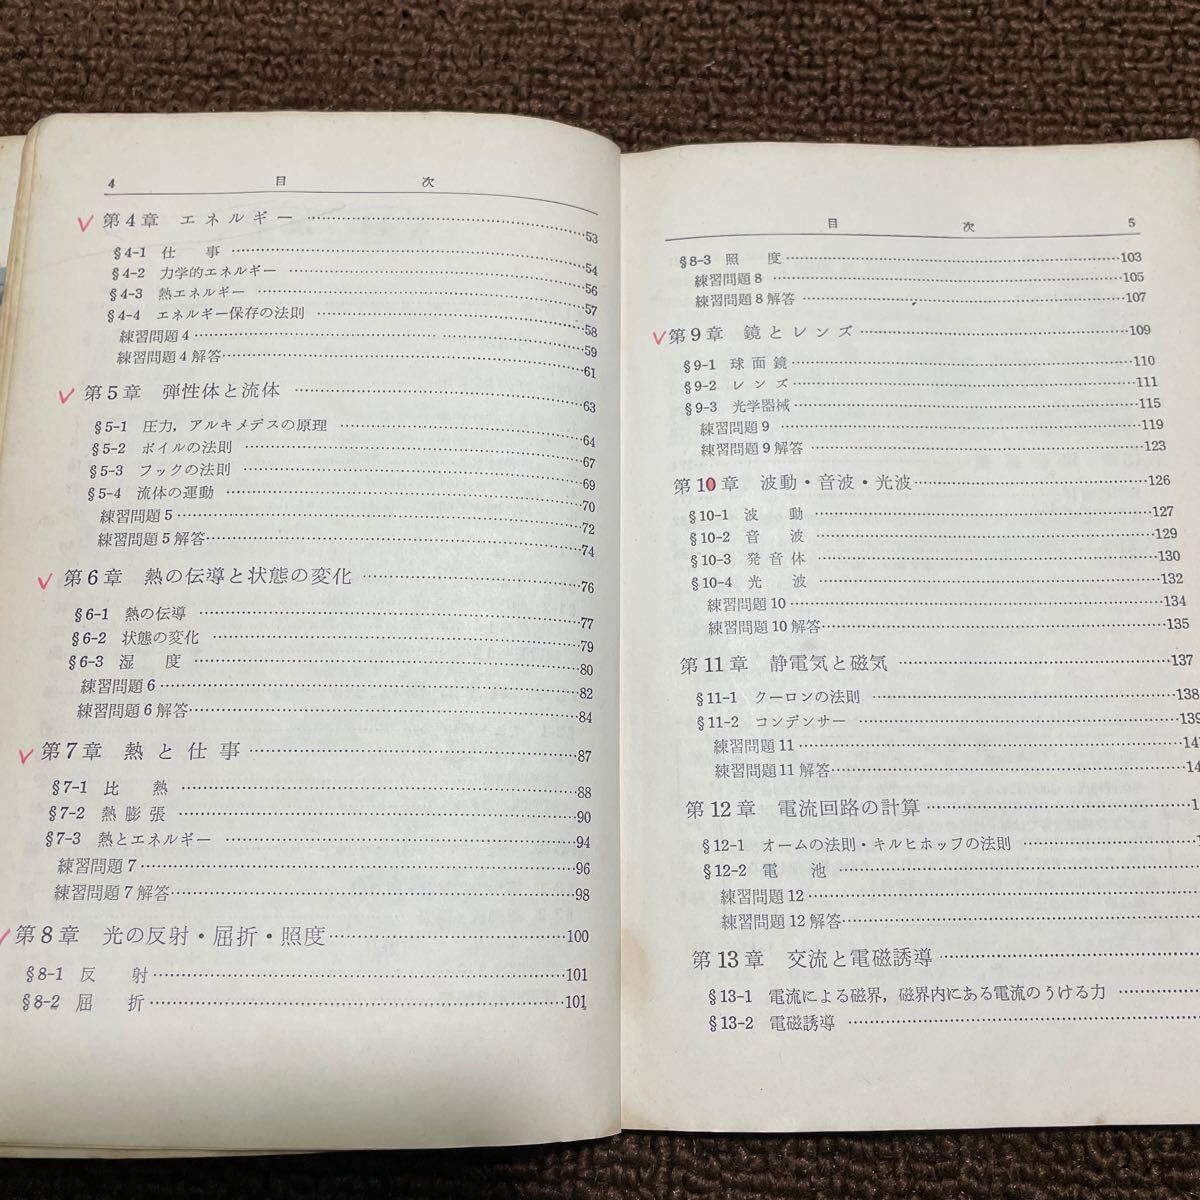 4 目 次
第4章 エネルギー ……53
§4-1 仕 事 ……54
§4-2 力学的エネルギー ……56
§4-3 熱エネルギー ……57
§4-4 エネルギー保存の法則 ……58
練習問題4……59
練習問題4解答……61
第5章 弾性体と流体 ……63
§5-1 圧力，アルキメデスの原理 ……64
§5-2 ボイルの法則 ……67
§5-3 フックの法則 ……69
§5-4 流体の運動 ……70
練習問題5……72
練習問題5解答……74
第6章 熱の伝導と状態の変化 ……76
§6-1 熱の伝導 ……77
§6-2 状態の変化 ……79
§6-3 湿 度 ……80
練習問題6……82
練習問題6解答……84
第7章 熱と仕事 ……87
§7-1 比 熱 ……88
§7-2 熱膨張 ……90
§7-3 熱とエネルギー ……94
練習問題7……96
練習問題7解答……98
第8章 光の反射・屈折・照度……100
§8-1 反 射……101
§8-2 屈 折……101
目 次 5
§8-3 照 度……103
練習問題8……105
練習問題8解答……107
第9章 鏡とレンズ……109
§9-1 球面鏡……110
§9-2 レンズ……111
§9-3 光学器械……115
練習問題9……119
練習問題9解答……123
第10章 波動・音波・光波……126
§10-1 波 動 ……127
§10-2 音 波 ……129
§10-3 発音体 ……130
§10-4 光 波 ……132
練習問題10……134
練習問題10解答……135
第11章 静電気と磁気 ……137
§11-1 クーロンの法則 ……138
§11-2 コンデンサー ……139
練習問題11……14
練習問題11解答……14
第12章 電流回路の計算……1
§12-1 オームの法則・キルヒホッフの法則 ……1
§12-2 電 池 ……
練習問題12……
練習問題12解答……
第13章 交流と電磁誘導……
§13-1 電流による磁界，磁界内にある電流のうける力 ……
§13-2 電磁誘導 ……